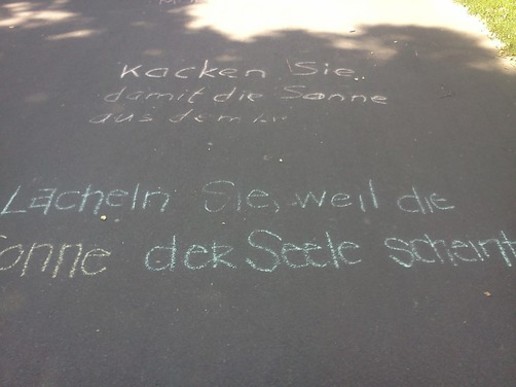 Kacken Sie
damit die Sonne
aus dem
Lächeln Sie, weil die
Sonne der Seele scheint